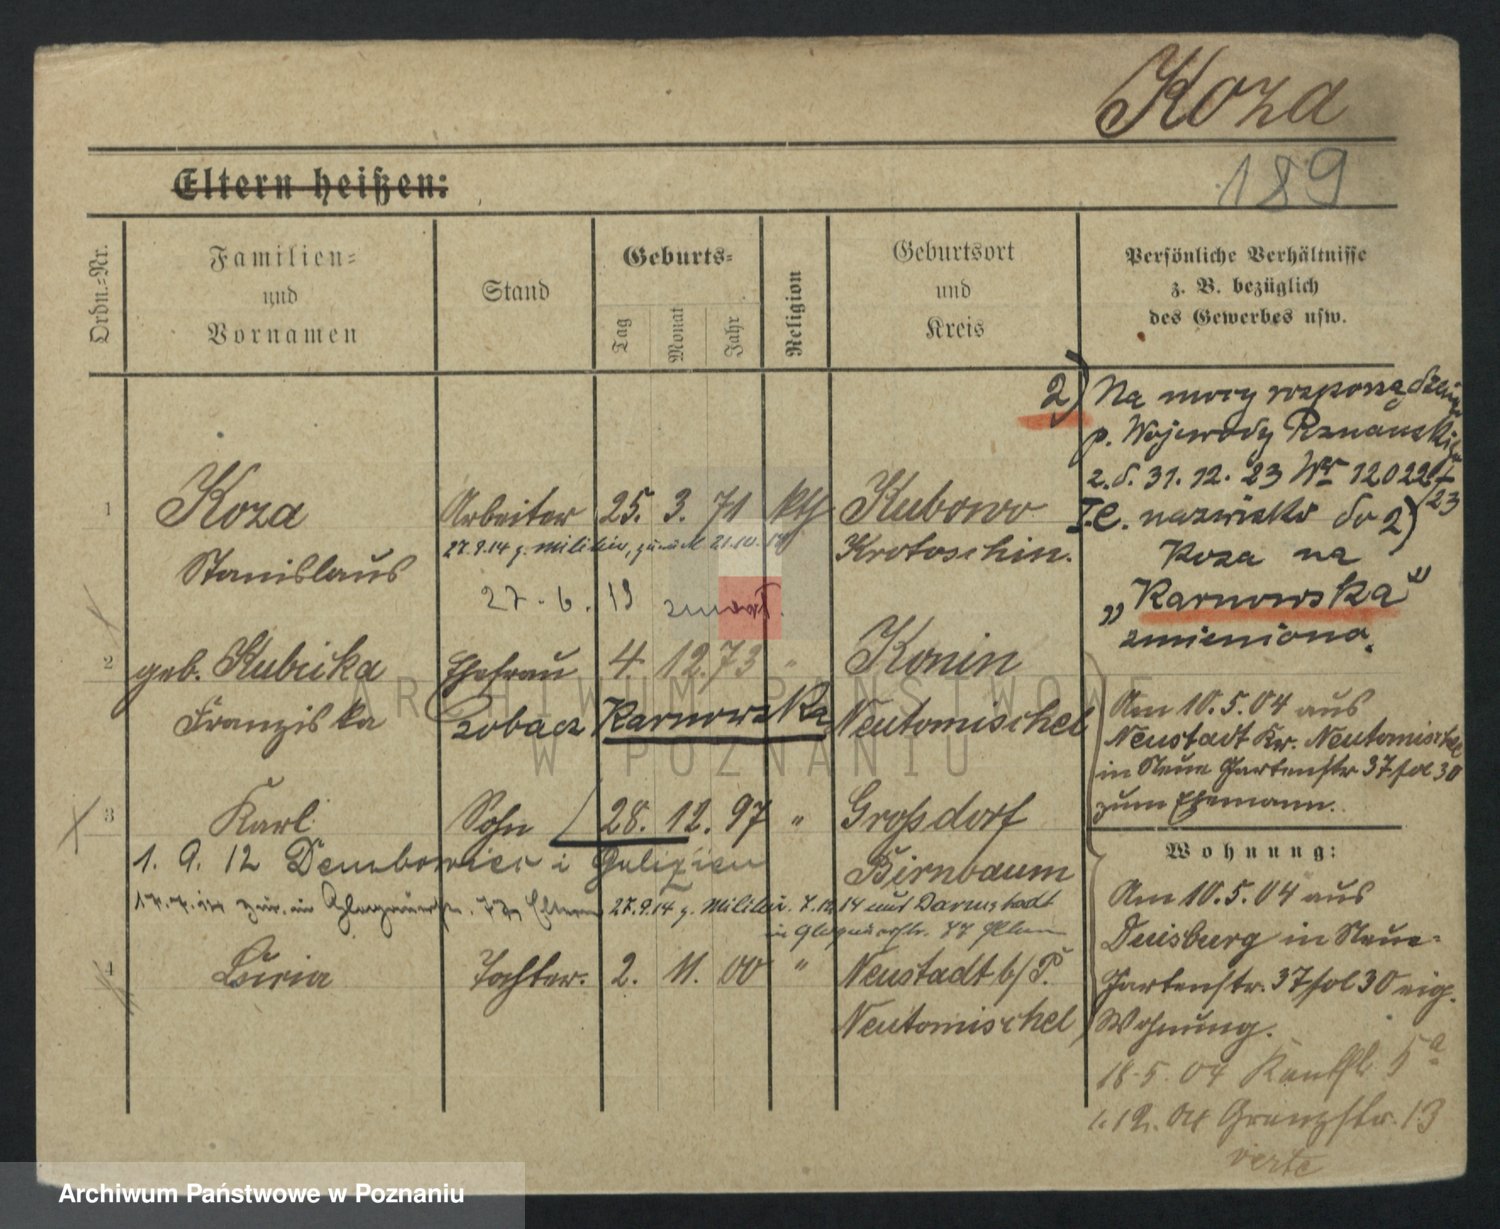 Koza
189
Eltern heißen:
Ordn.=Nr.
Familien=
und
Vornamen
Stand
Geburts=
Tag
Monat
Jahr
Religion
Geburtsort
und
Kreis
Persönliche Verhältnisse
z. B. bezüglich
des Gewerbes usw.
2) Na mocy rozporządzenia
p. Wojewody Poznańskiego
z. d. 31. 12. 23 Nr 12022/
23
I.C. nazwisko do 2)
Koza na
„Karnowska"
zmieniono.
1 Koza Arbeiter 25. 3. 71 kth Kubowo
27.9.14 z. Militär, zurück 21.10.
Stanislaus Krotoschin.
27. 6. 19 zmarł.
2 geb. Kubcika Ehefrau 4. 12. 73 " Konin
Franziska Zobacz Karnowska Neutomischel
Am 10.5.04 aus
Neustadt Kr. Neutomischel
in Neue Gartenstr 37 sol 30
zum Ehemann.
3 Karl Sohn 28. 12. 97 " Großdorf
Birnbaum
1. 9. 12 Dembowiec i Galizien
27.9.14 z. Militär. 7.12.14 aus Darmstadt
in Glogauerstr. 77 Eltern
Wohnung:
Am 10.5.04 aus
Duisburg in Neue-
Gartenstr. 37 sol 30 eig.
Wohnung.
4 Luria Tochter. 2. 11. 00 " Neustadt b/P.
Neutomischel
18.5.04 5a
1.12.04 Grenzstr. 13
verte
ARCHIWUM PAŃSTWOWE
W POZNANIU
Archiwum Państwowe w Poznaniu